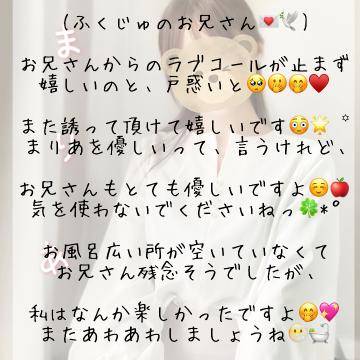 (ふくじゅのお兄さん💌🕊️)
お兄さんからのラブコールが止まず
嬉しいのと、戸惑いと🥺🤭🤭♥️
また誘って頂けて嬉しいです😳🌟
まりあを優しいって、言うけれど、
お兄さんもとても優しいですよ☺️🍎
気を使わないでくださいねっ🍀*°
お風呂広い所が空いていなくて
お兄さん残念そうでしたが、
私はなんか楽しかったですよ🤭💖
またあわあわしましょうね🛀